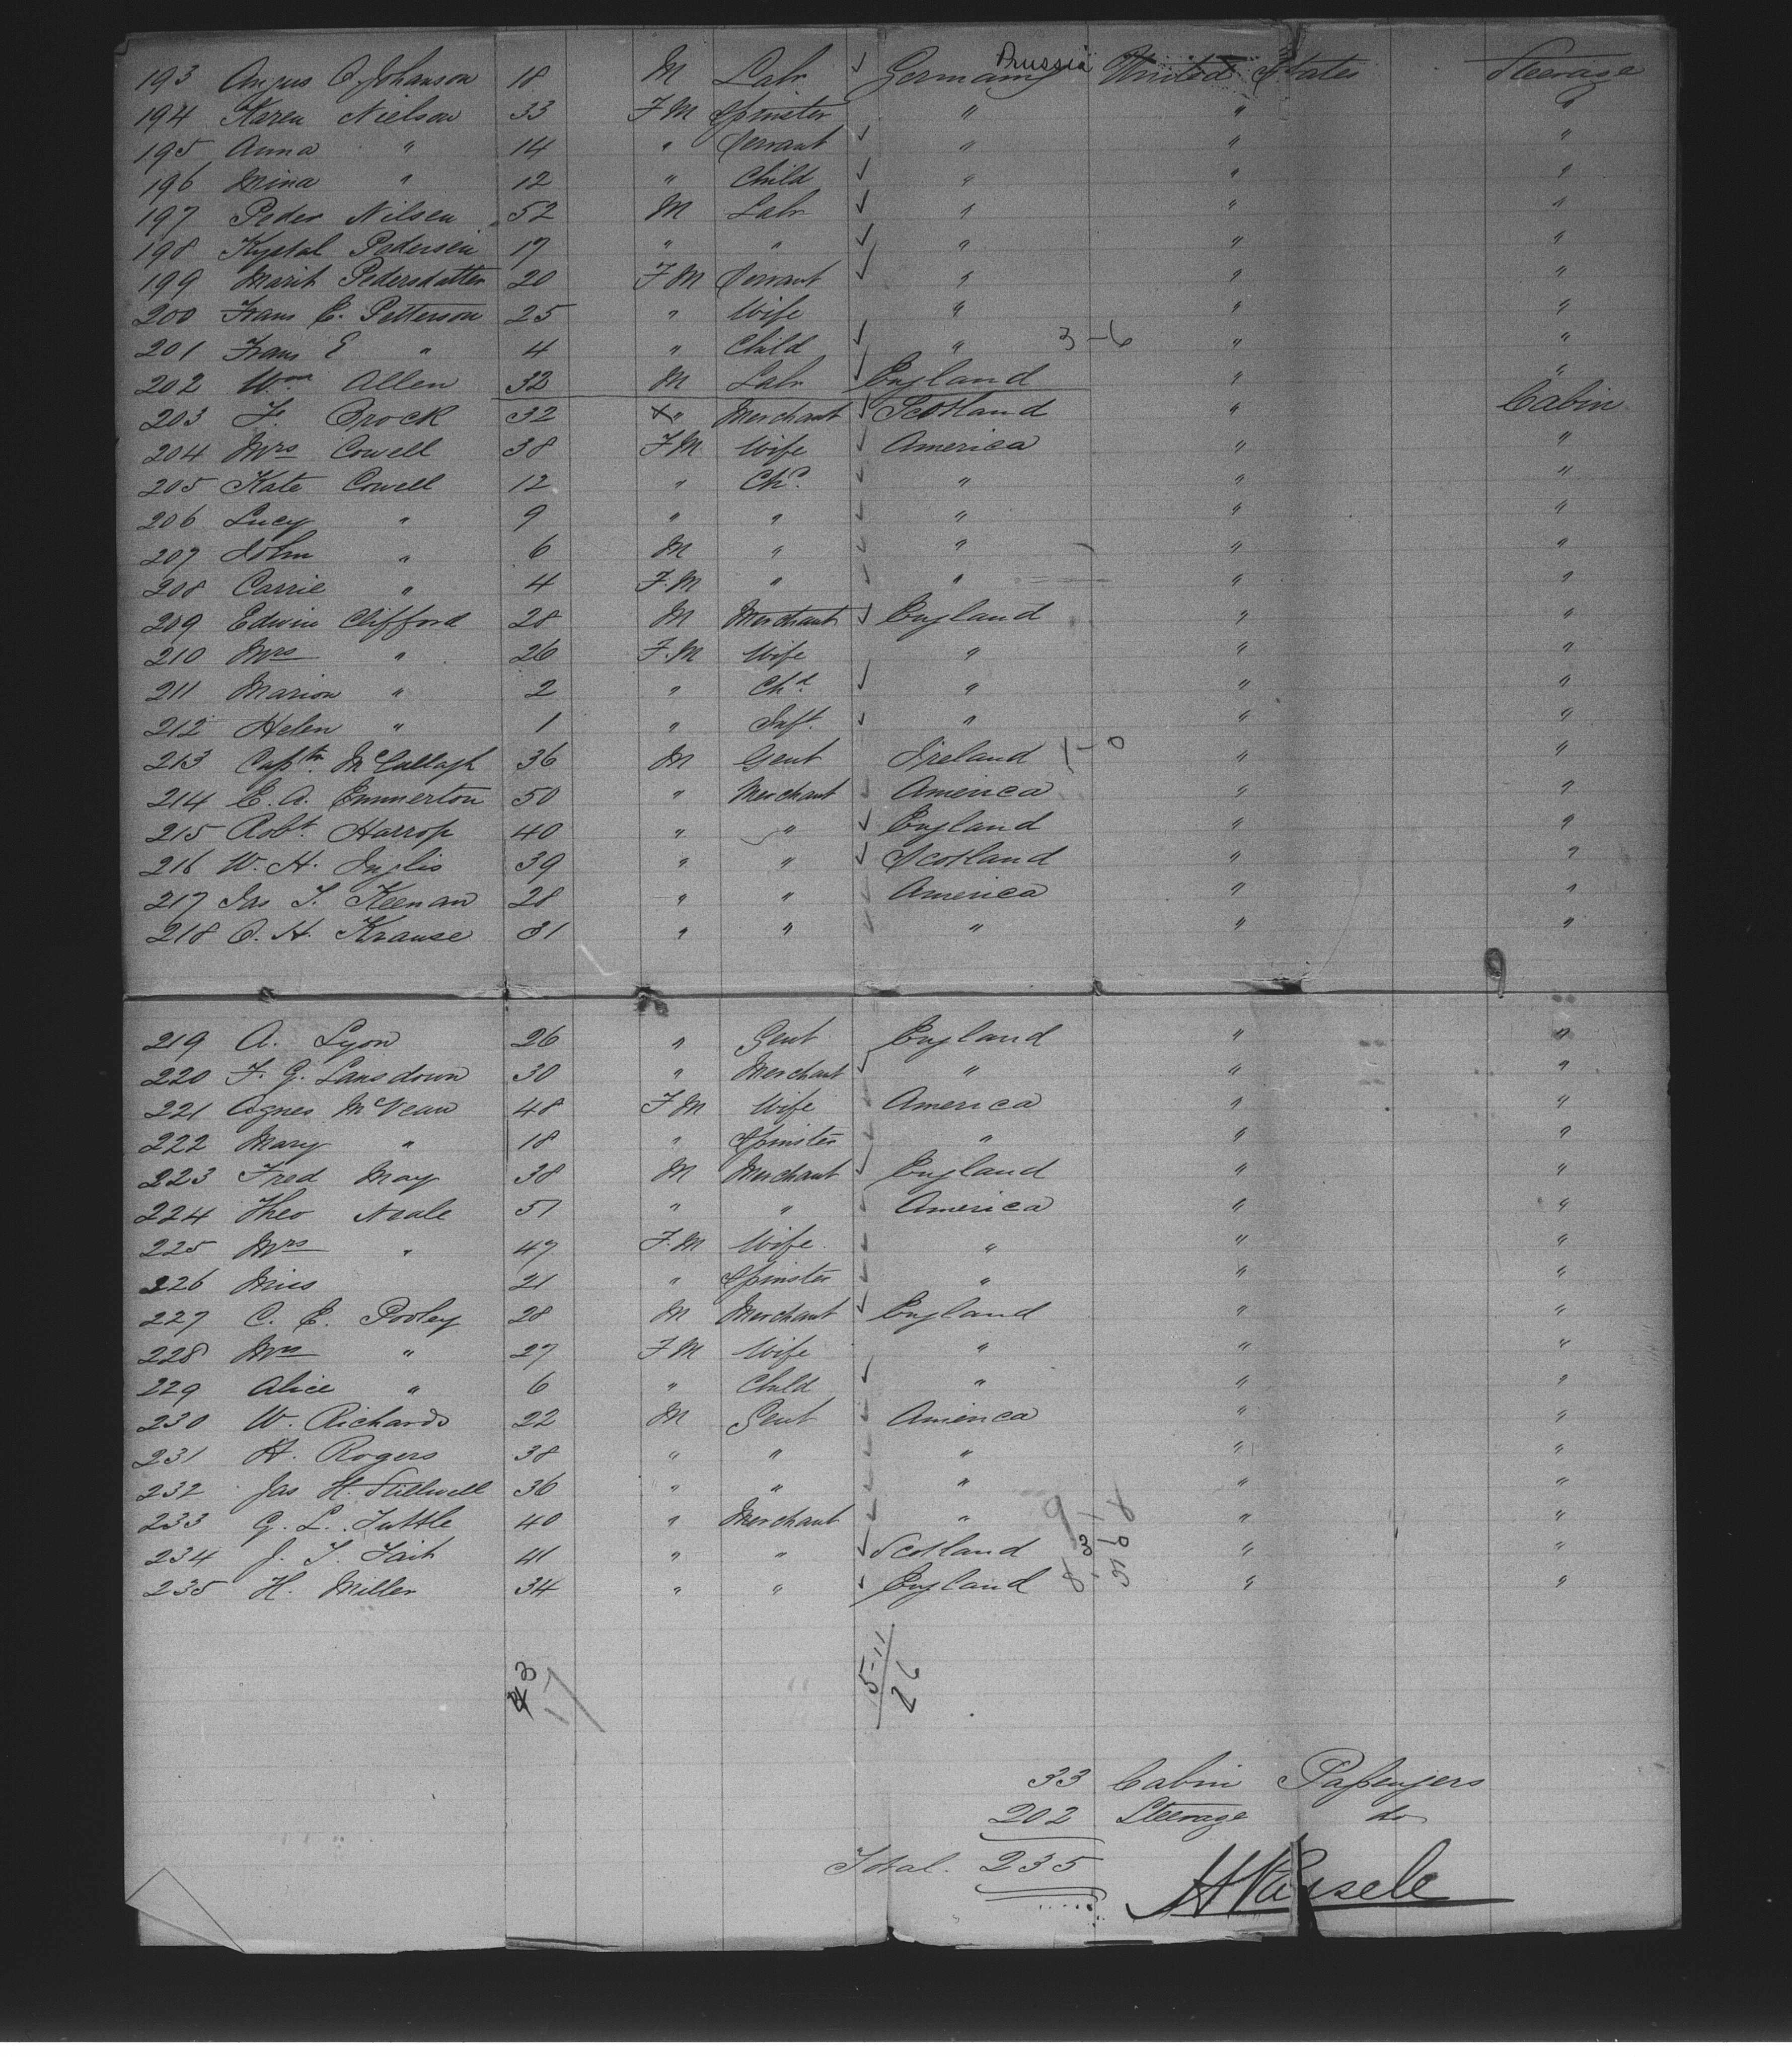 Prussia
193 Angus A Johanson 18 M Labr ✓ Germany United States Steerage
194 Karen Nielson 33 FM Spinster " " "
195 Anna " 14 " Servant ✓ " " "
196 Mina " 12 " Child ✓ " " "
197 Peder Nilsen 52 M Labr ✓ " " "
198 Pedersen 17 " " ✓ " " "
199 Marit Pedersdatter 20 FM Servant ✓ " " "
200 Frans E. Petterson 25 " Wife " " "
201 Frans E " 4 " Child ✓ " 3-6 " "
202 Wm Allen 32 M Labr ✓ England " "
203 F. Brock 32 x " Merchant ✓ Scotland " Cabin
204 Mrs Cowell 38 FM Wife ✓ America " "
205 Kate Cowell 12 " Chd ✓ " " "
206 Lucy " 9 " " ✓ " " "
207 John " 6 M " ✓ " " "
208 Carrie " 4 F.M " ✓ " " "
209 Edwin Clifford 28 M Merchant ✓ England " "
210 Mrs " 26 F.M Wife " " "
211 Marion " 2 " Chd ✓ " " "
212 Helen " 1 " Inft ✓ " " "
213 Captn McCullagh 36 M Gent Ireland 1-0 " "
214 E. A. Emmerton 50 " Merchant ✓ America " "
215 Robt Harrop 40 " " ✓ England " "
216 W. H. Inglis 39 " " ✓ Scotland " "
217 Jas T. Keenan 28 " " ✓ America " "
218 O. H. Krause 31 " " ✓ " " "
9
219 A. Lyon 26 " Gent England " "
220 F. G. Lansdown 30 " Merchant ✓ " " "
221 Agnes McVean 48 FM Wife ✓ America " "
222 Mary " 18 " Spinster ✓ " " "
223 Fred May 38 M Merchant ✓ England " "
224 Theo Neale 51 " " ✓ America " "
225 Mrs " 47 F.M Wife ✓ " " "
226 Miss 21 " Spinster ✓ " " "
227 C. E. Pooley 28 M Merchant ✓ England " "
228 Mrs " 27 FM Wife " " "
229 Alice " 6 " Child ✓ " " "
230 W. Richards 22 M Gent ✓ America " "
231 H. Rogers 38 " " ✓ " " "
232 Jas H. Stillwell 36 " " ✓ " " "
233 G. L. Tuttle 40 " Merchant ✓ " " "
234 J. T. Tait 41 " " ✓ Scotland " "
235 H. Miller 34 " " ✓ England " "
5-11
26
17
33 Cabin Passengers
202 Steerage do
Total. 235